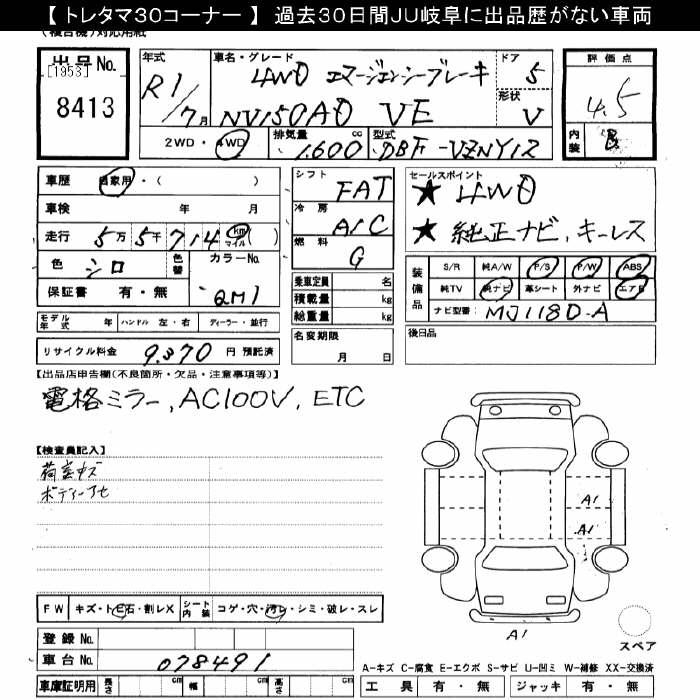 【 トレタマ30コーナー 】 過去30日間JU岐阜に出品歴がない車両
(複合機)対応用紙
出品No.
[1953]
8413
年式
R1/7月
車名・グレード
4WD エマージェンシーブレーキ
NV150AD VE
ドア
5
形状
V
評価点
4.5
内装
B
2WD・4WD
排気量
1,600 cc
型式
DBF-VZNY12
車歴 自家用・( )
車検 年 月
走行 5万 5千 714 km マイル ( )
色 シロ
色替
カラーNo.
QM1
保証書 有・無
シフト
FAT
冷房
A/C
燃料
G
乗車定員 名
積載量 kg
総重量 kg
セールスポイント
★ 4WD
★ 純正ナビ、キーレス
装備品
S/R 純A/W P/S P/W ABS
純TV 純ナビ 革シート 外ナビ エアB
ナビ型番: MJ118D-A
モデル年式 年 ハンドル 左・右 ディーラー・並行
名変期限
月 日
後日品
リサイクル料金 9,370 円 預託済
【出品店申告欄(不良箇所・欠品・注意事項等)】
電格ミラー、AC100V、ETC
【検査員記入】
荷室キズ
ボディーアセ
A1
A1
A1
スペア
FW キズ・トビ石・割レX
シート内装 コゲ・穴・汚レ・シミ・破レ・スレ
登録 No.
車台 No. 078491
車庫証明用 長さ cm 幅 cm 高さ cm
A-キズ C-腐食 E-エクボ S-サビ U-凹ミ W-補修 XX-交換済
工具 有・無 ジャッキ 有・無